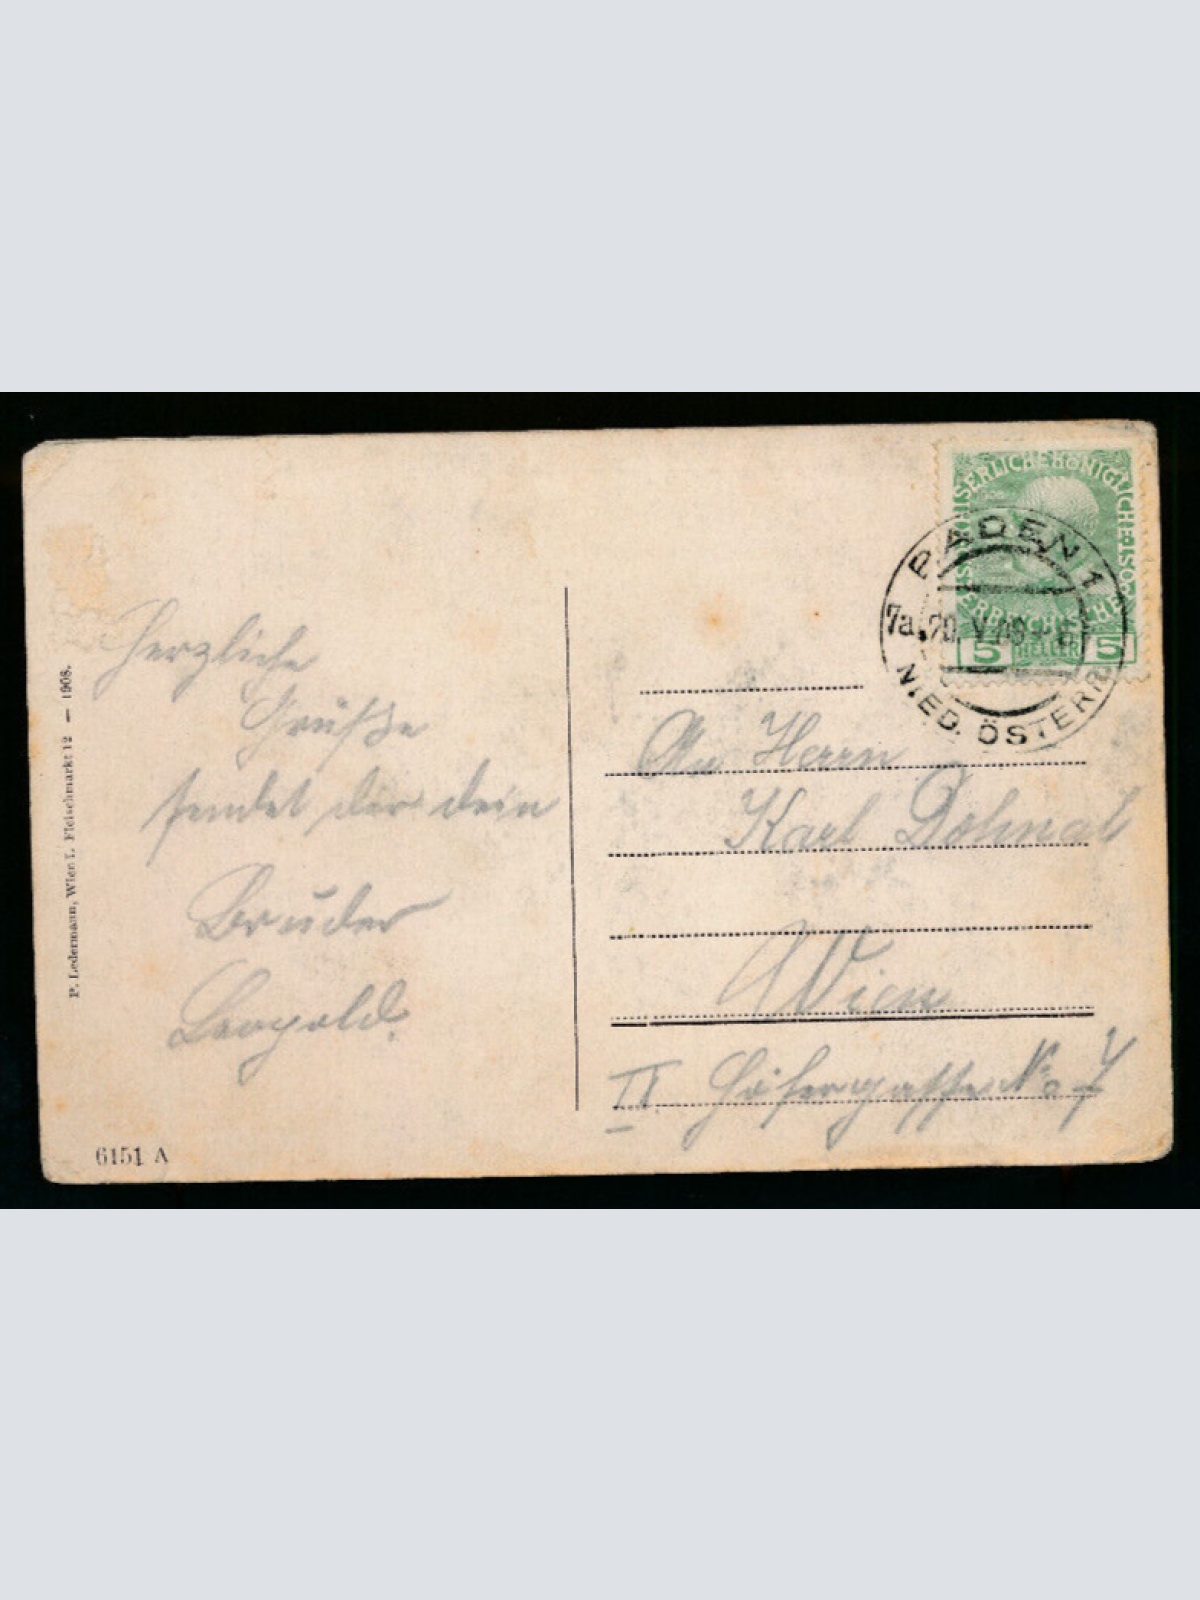 Herzliche
Grüße
sendet dir dein
Bruder
Leopold.
P. Ledermann, Wien I. Fleischmarkt 12 — 1908.
6151 A
KAISERLICHE KÖNIGLICHE
ÖSTERREICHISCHE POST
1908
5 HELLER 5
BADEN 1
7a. 20. V. 09
NIED. ÖSTERR.
An Herrn
Karl Dohnal
Wien
II No 7